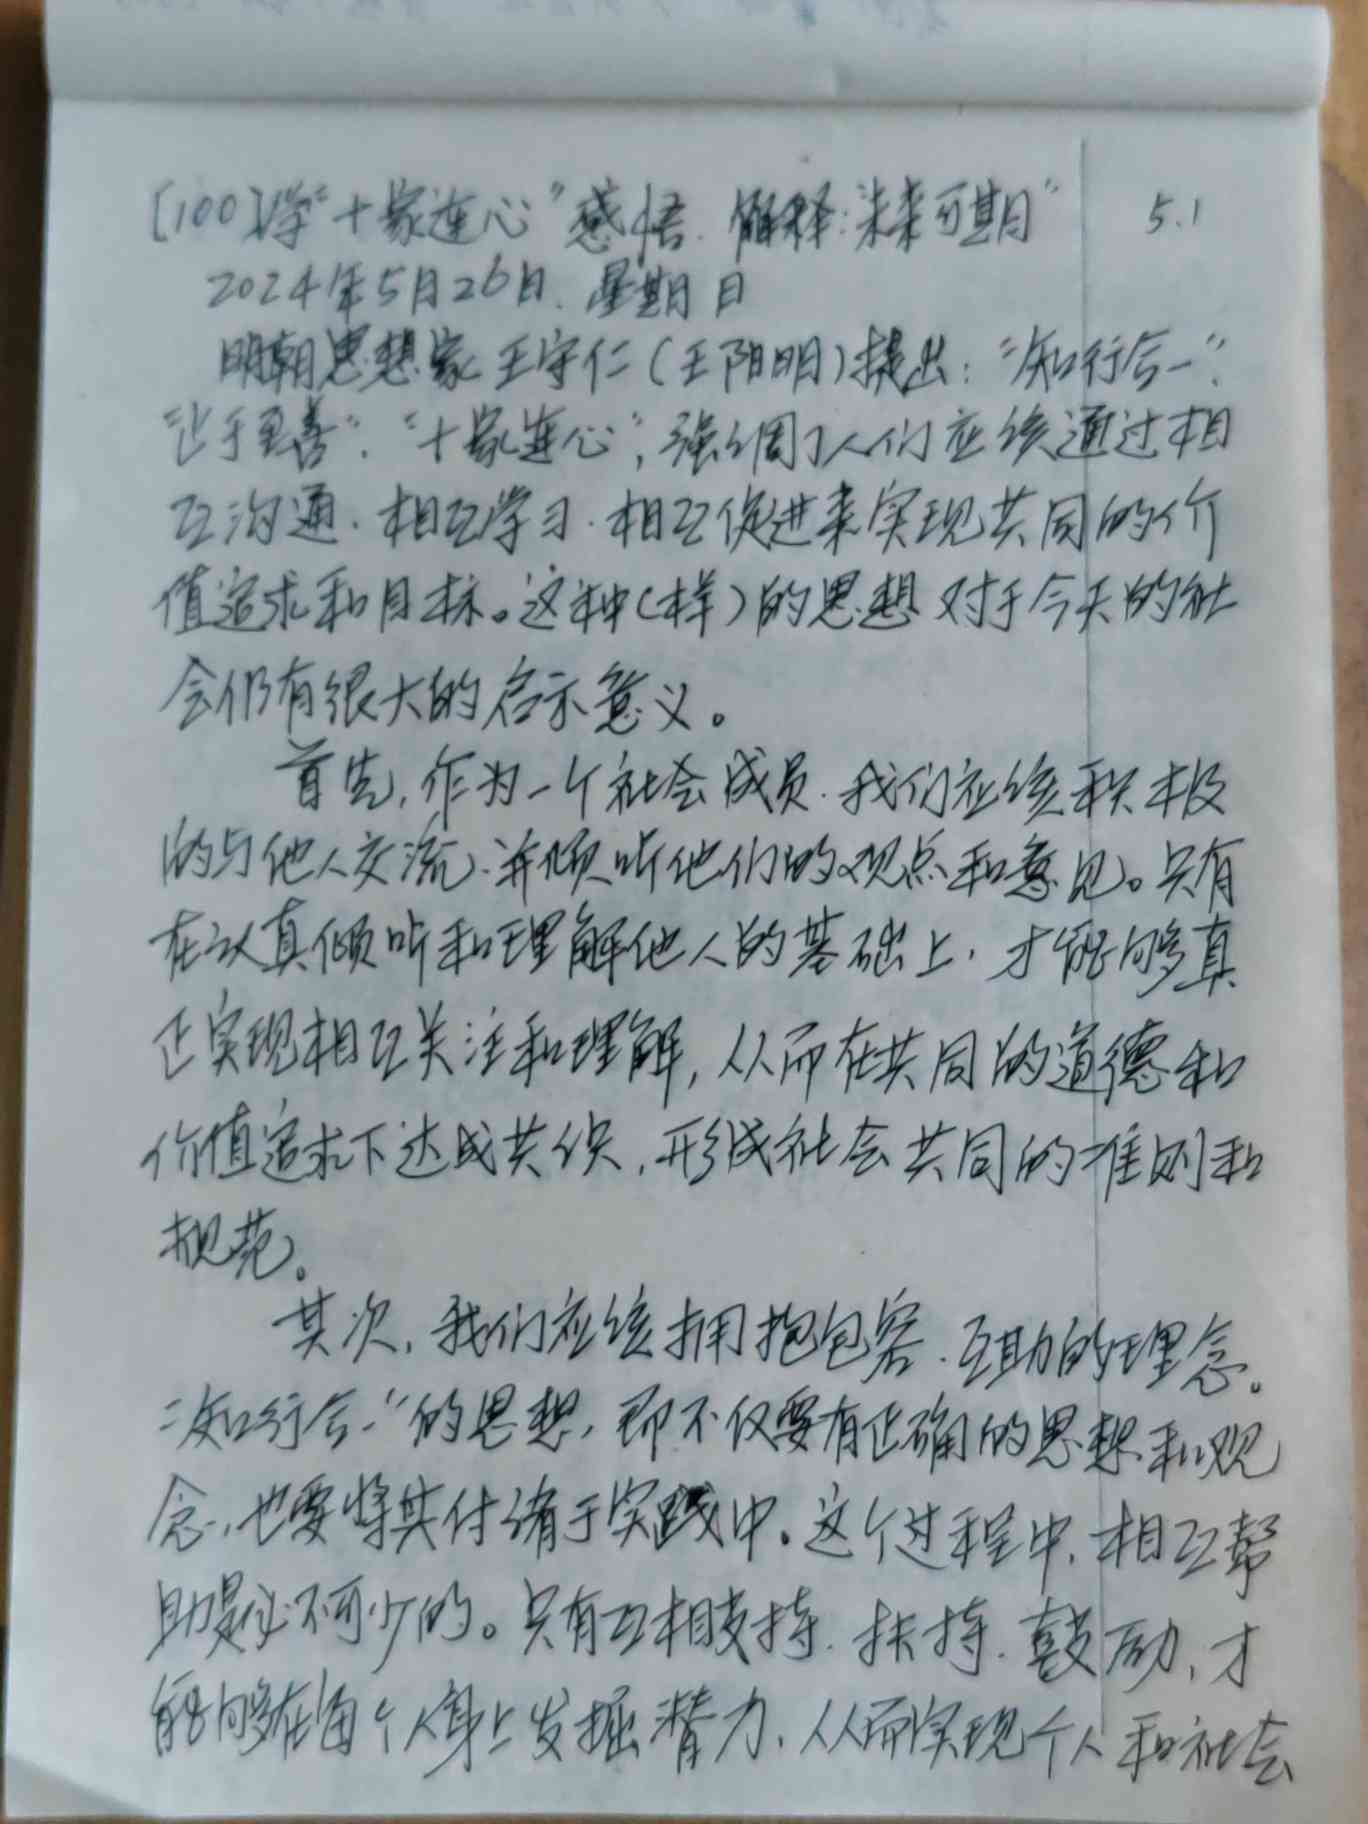 [100]学"十家连心"感悟.解释:未来可期" 5.1
2024年5月26日.星期日
明朝思想家王守仁(王阳明)提出:"知行合一".
"止于至善"."十家连心",强调了人们应该通过相
互沟通.相互学习.相互促进来实现共同的价
值追求和目标。这种(样)的思想对于今天的社
会仍有很大的启示意义。
首先,作为一个社会成员.我们应该积极
的与他人交流.并倾听他们的观点和意见。只有
在认真倾听和理解他人的基础上,才能够真
正实现相互关注和理解,从而在共同的道德和
价值追求下达成共识,形成社会共同的准则和
规范。
其次,我们应该拥抱包容.互助的理念。
"知行合一"的思想,即不仅要有正确的思想和观
念,也要将其付诸于实践中。这个过程中,相互帮
助是必不可少的。只有互相支持.扶持.鼓励,才
能够在每个人身上发掘潜力,从而实现个人和社会